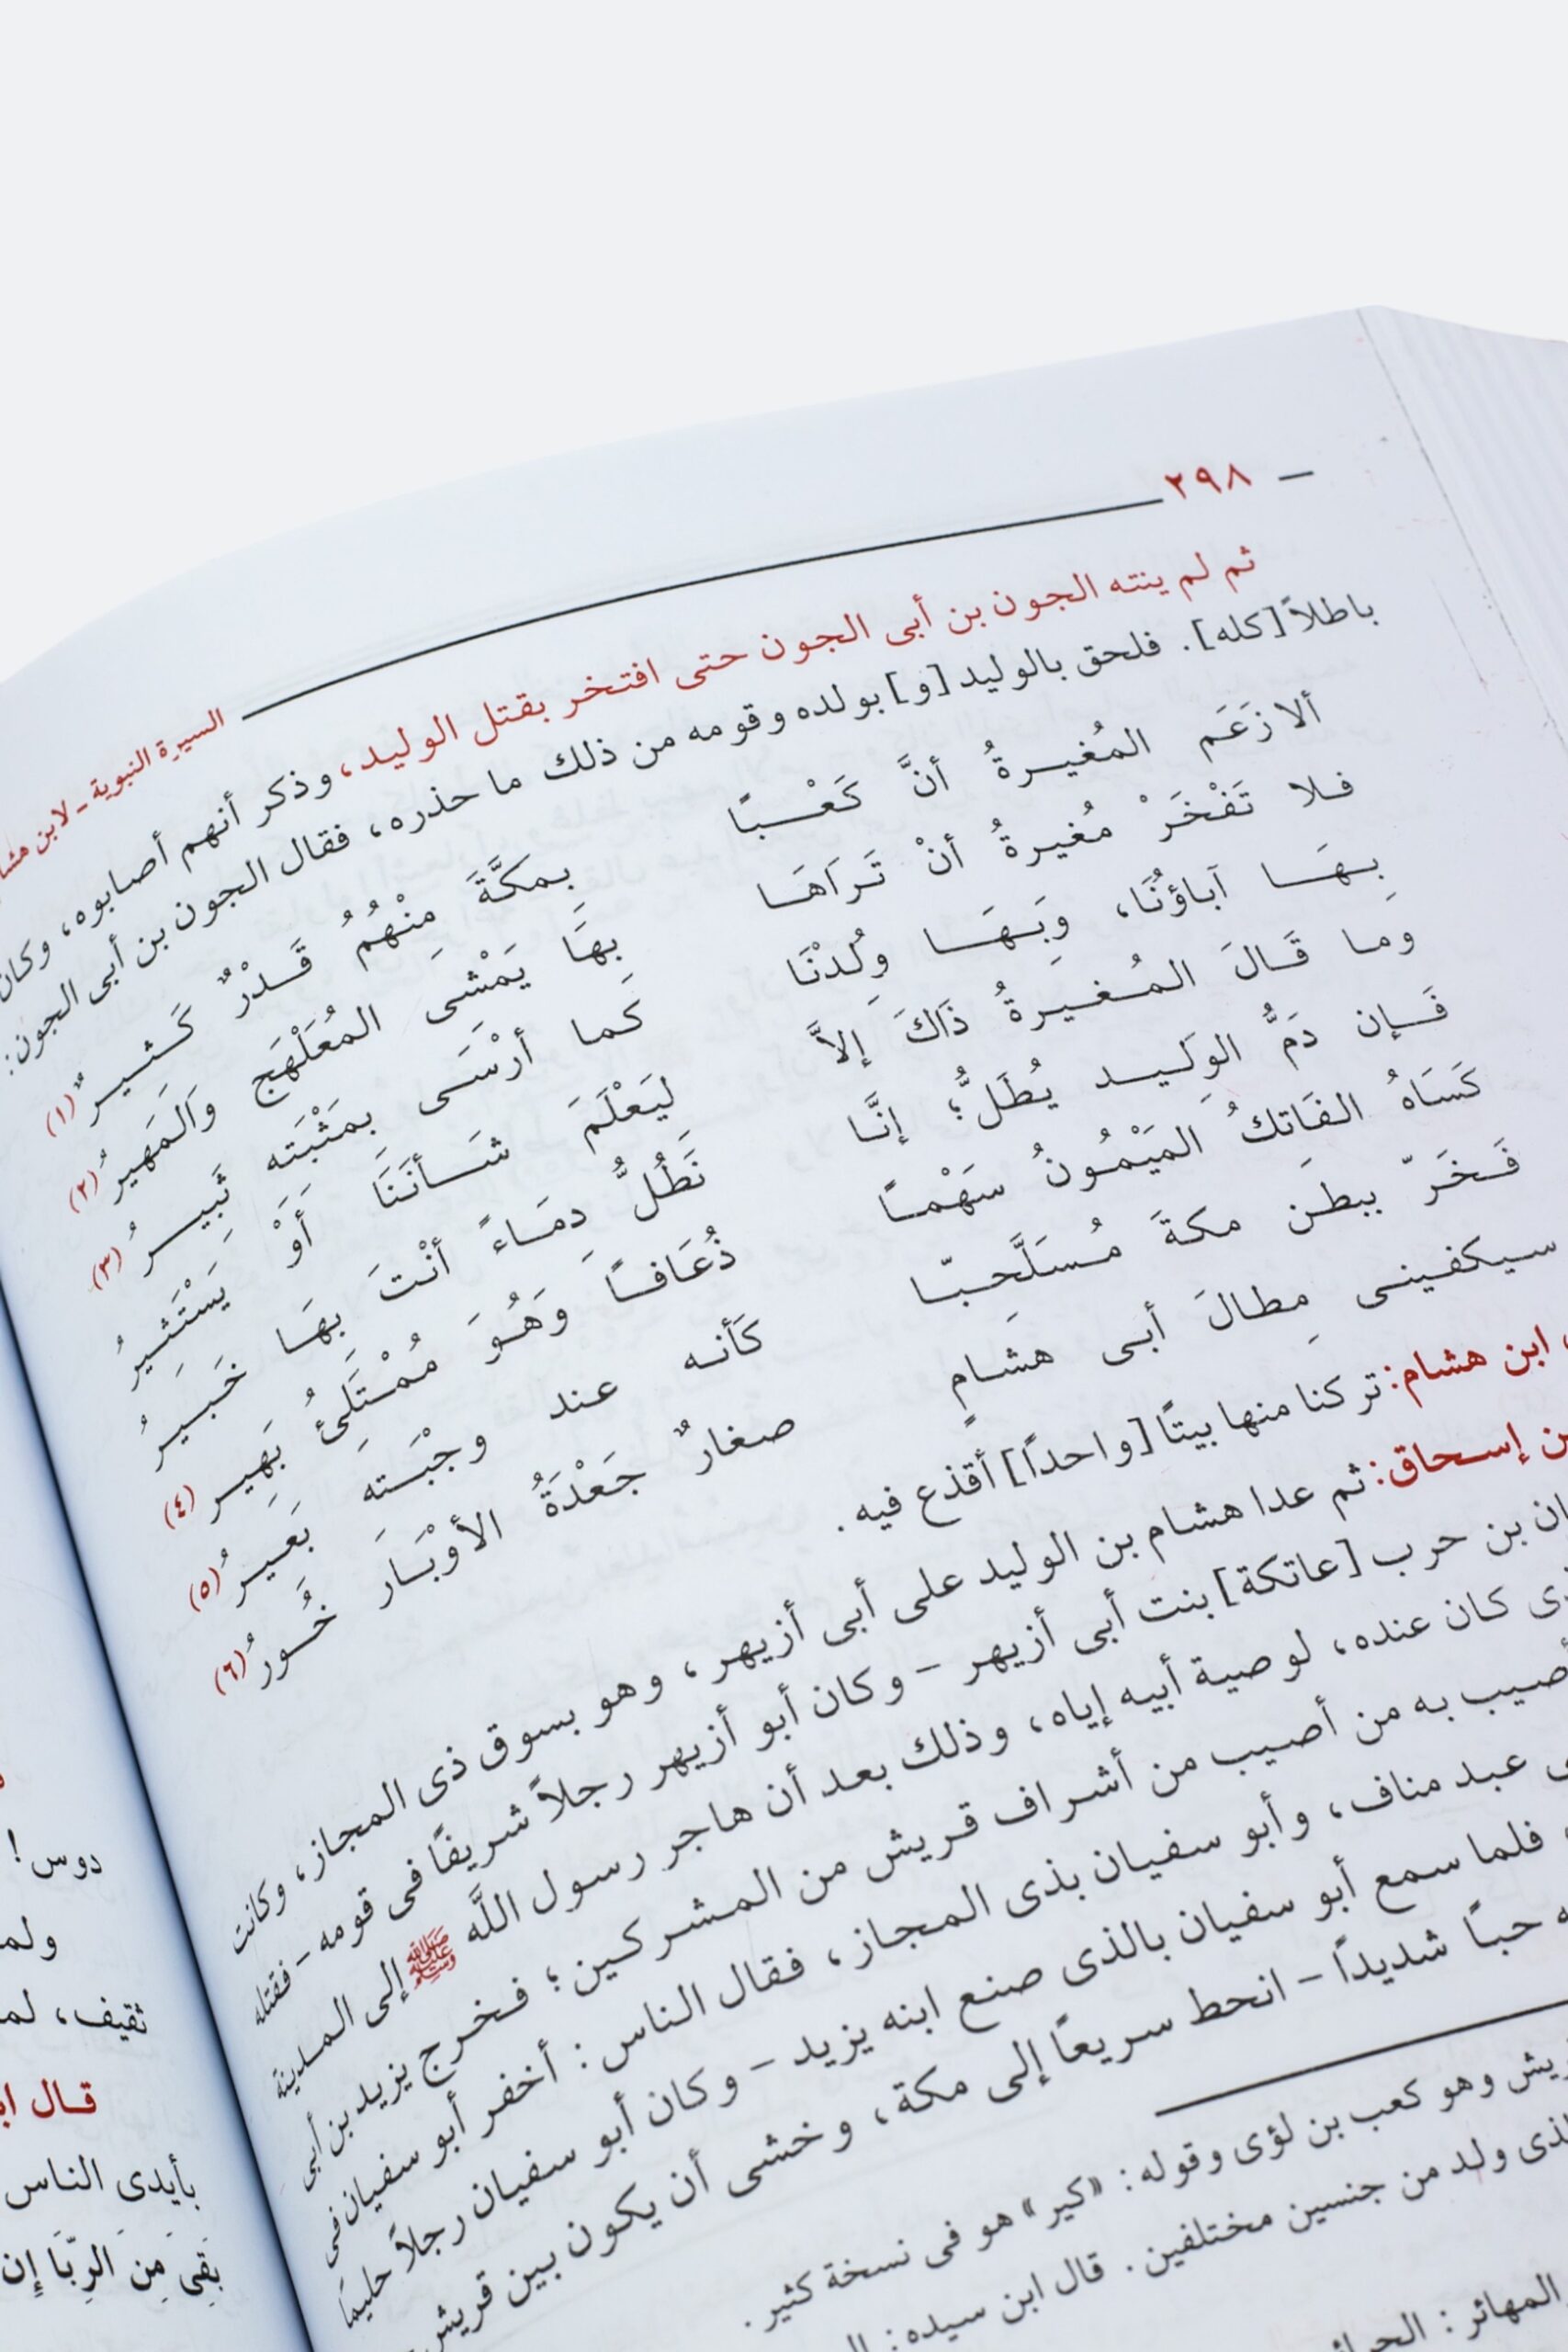 ٢٩٨ السيرة النبوية ـ لابن
ثم لم ينته الجون بن أبى الجون حتى افتخر بقتل الوليد، وذكر أنهم أصابوه، وكان
باطلاً [كله]. فلحق بالوليد [و] بولده وقومه من ذلك ما حذره، فقال الجون بن أبى الجون:
ألا زَعَم المُغيرةُ أنَّ كَعْبًا بِمكَّةَ مِنْهُمُ قَدْرٌ كَثيرٌ (١)
فلا تَفْخَرْ مُغيرةُ أنْ تَرَاهَا بِهَا يَمْشى المُعَلْهَج وَالمَهِيرُ (٢)
بِهَا آباؤنُنَا، وَبِهَا وُلِدْنَا كَما أرْسَى بمَثْبَته ثَبِيرُ (٣)
وَما قَالَ المُغيرةُ ذَاكَ إلاَّ ليَعْلَمَ شَأنَنَا أوْ يَسْتَثيرُ
فَإن دَمُّ الوَليد يُطَلُّ؛ إنَّا نَطُلُّ دمَاءً أنْتَ بهَا خَبيرُ
كَسَاهُ الفَاتكُ المَيْمُونُ سَهْمًا ذُعَافًا وَهُوَ مُمْتَلِئُ بَهِير (٤)
فَخَرّ ببطن مكةَ مُسَلَّحبّا كَأنه عند وجْبَته بَعيرُ (٥)
سيكفينى مِطالَ أبى هشامٍ صغارٌ جَعْدَةُ الأوْبَار خُورُ (٦)
ابن هشام: تركنا منها بيتًا [واحدًا] أقذع فيه.
إسحاق: ثم عدا هشام بن الوليد على أبى أزيهر، وهو بسوق ذى المجاز، وكانت
بن حرب [عاتكة] بنت أبى أزيهر - وكان أبو أزيهر رجلاً شريفًا فى قومه - فقتله
كان عنده، لوصية أبيه إياه، وذلك بعد أن هاجر رسول اللَّه ﷺ إلى المدينة
أصيب به من أصيب من أشراف قريش من المشركين؛ فخرج يزيد بن أبى
عبد مناف، وأبو سفيان بذى المجاز، فقال الناس: أخفر أبو سفيان فى
فلما سمع أبو سفيان بالذى صنع ابنه يزيد - وكان أبو سفيان رجلاً حليمًا
حبًا شديدًا - انحط سريعًا إلى مكة، وخشى أن يكون بين قريش
وهو كعب بن لؤى وقوله: «كير» هو فى نسخة كثير.
ولد من جنسين مختلفين. قال ابن سيده:
المهائر:
دوس!
ثقيف،
قال
بأيدى الناس
بَقِىَ مِنَ الرِّبَا إِن